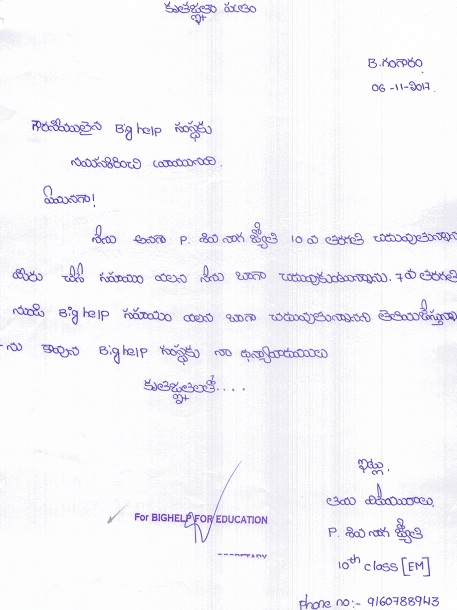 కృతజ్ఞతా పత్రం
B.గంగారం.
06-11-2017.
గౌరవనీయులైన Big help సంస్థకు
నమస్కరించి వ్రాయునది.
ఏమనగా!
నేను అనగా P. శివ నాగ జ్యోతి 10 వ తరగతి చదువుతున్నాను
మీరు చేసే సహాయం వలన నేను బాగా చదువుకుంటున్నాను. 7 వ తరగతి
నుండి Big help సహాయం వలన బాగా చదువుతున్నానని తెలియజేస్తున్నా
-ను కావున Big help సంస్థకు నా ధన్యవాదములు
కృతజ్ఞతలతో....
ఇట్లు,
తమ విధేయురాలు,
P. శివ నాగ జ్యోతి
10th class [EM]
Phone no:- 9160788943
For BIGHELP FOR EDUCATION
SECRETARY